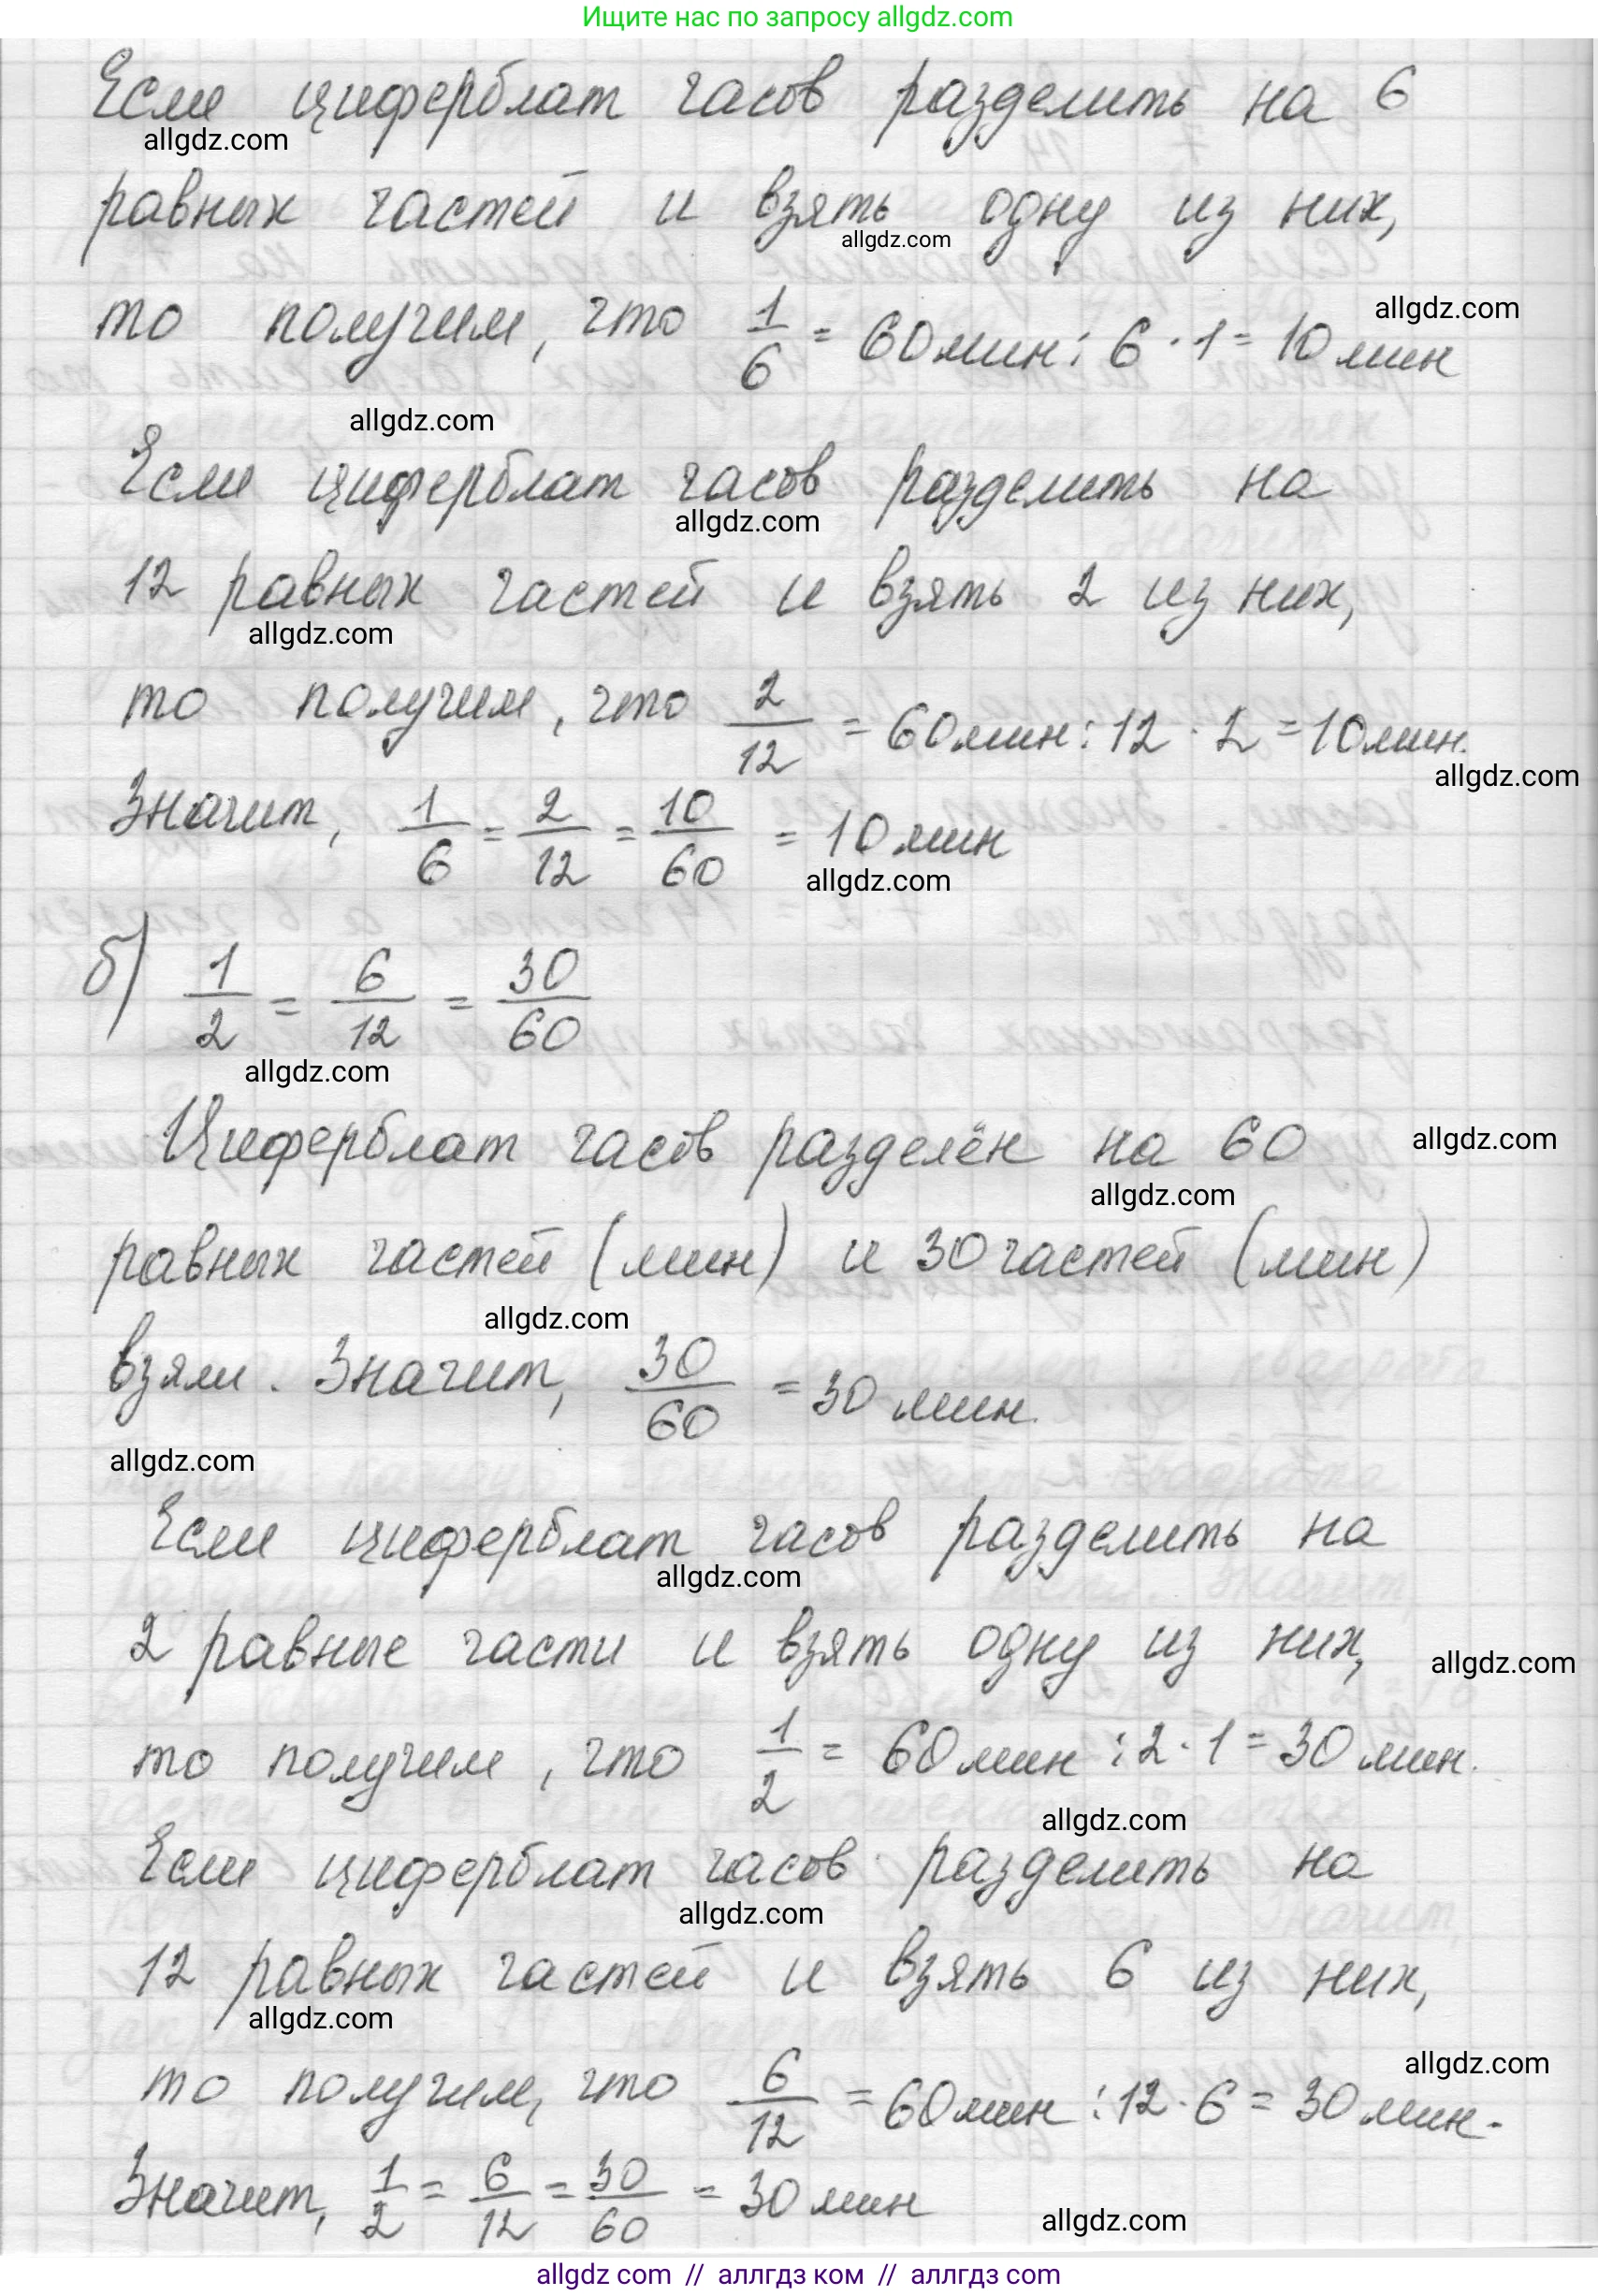 Ищите нас по запросу allgdz.com
Если циферблат часов разделить на 6
allgdz.com
равных частей и взять одну из них,
allgdz.com
то получим, что 1/6 = 60 мин : 6 · 1 = 10 мин
allgdz.com
allgdz.com
Если циферблат часов разделить на
allgdz.com
12 равных частей и взять 2 из них,
allgdz.com
то получим, что 2/12 = 60 мин : 12 · 2 = 10 мин.
allgdz.com
Значит, 1/6 = 2/12 = 10/60 = 10 мин
allgdz.com
б) 1/2 = 6/12 = 30/60
allgdz.com
Циферблат часов разделён на 60
allgdz.com
allgdz.com
равных частей (мин) и 30 частей (мин)
allgdz.com
взяли. Значит, 30/60 = 30 мин.
allgdz.com
Если циферблат часов разделить на
allgdz.com
2 равные части и взять одну из них,
allgdz.com
то получим, что 1/2 = 60 мин : 2 · 1 = 30 мин.
allgdz.com
Если циферблат часов разделить на
allgdz.com
12 равных частей и взять 6 из них,
allgdz.com
allgdz.com
то получим, что 6/12 = 60 мин : 12 · 6 = 30 мин.
Значит, 1/2 = 6/12 = 30/60 = 30 мин
allgdz.com
allgdz.com // аллгдз ком // аллгдз com